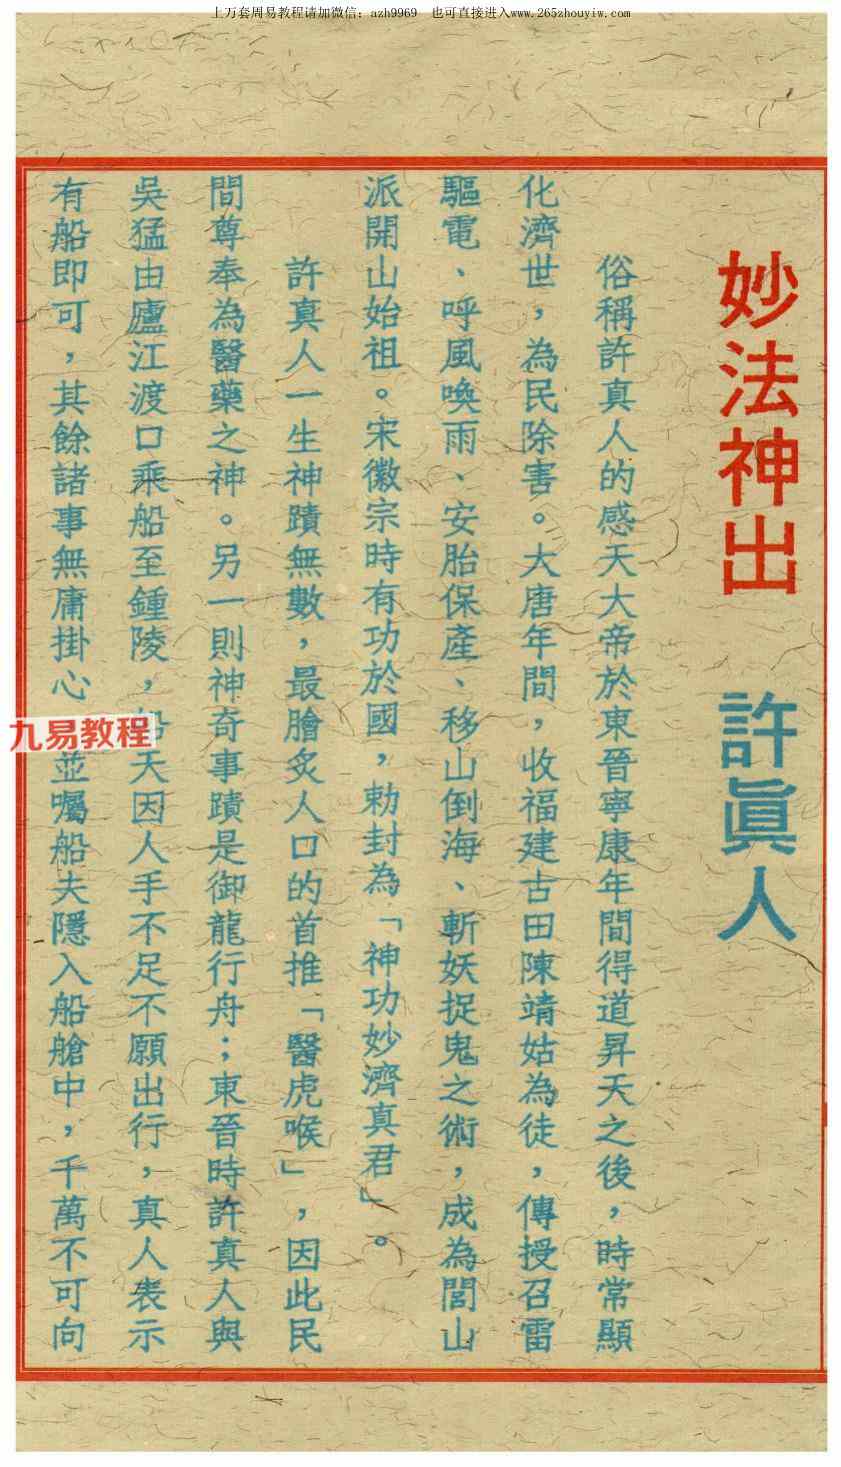 上万套周易教程请加微信：azh9969 也可直接进入www.265zhouyiw.com
妙法神出 許眞人
俗稱許真人的感天大帝於東晉寧康年間得道昇天之後，時常顯
化濟世，為民除害。大唐年間，收福建古田陳靖姑為徒，傳授召雷
驅電、呼風喚雨、安胎保產、移山倒海、斬妖捉鬼之術，成為閭山
派開山始祖。宋徽宗時有功於國，勅封為「神功妙濟真君」。
許真人一生神蹟無數，最膾炙人口的首推「醫虎喉」，因此民
間尊奉為醫藥之神。另一則神奇事蹟是御龍行舟；東晉時許真人與
吳猛由廬江渡口乘船至鍾陵，夫因人手不足不願出行，真人表示
有船即可，其餘諸事無庸掛心並囑船夫隱入船艙中，千萬不可向
九易教程